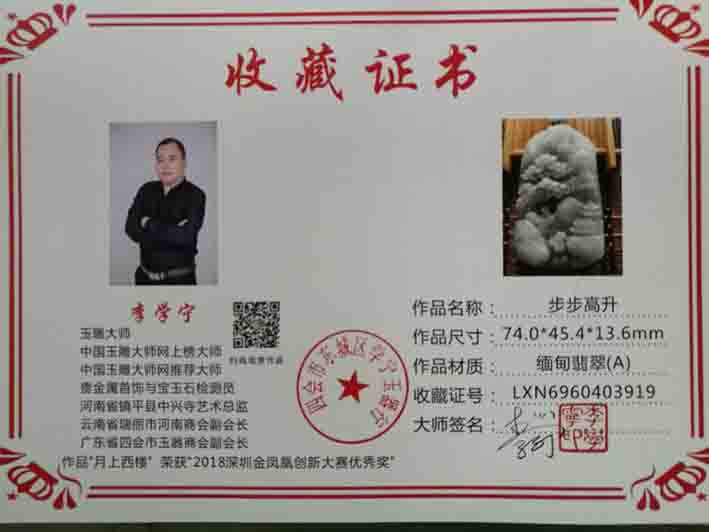 收藏证书
李学宁
玉雕大师
中国玉雕大师网上榜大师
中国玉雕大师网推荐大师
贵金属首饰与宝玉石检测员
河南省镇平县中兴寺艺术总监
云南省瑞丽市河南商会副会长
广东省四会市玉器商会副会长
作品"月上西楼" 荣获"2018深圳金凤凰创新大赛优秀奖"
扫码观赏作品
四会市东城区学宁玉器行
作品名称： 步步高升
作品尺寸：74.0*45.4*13.6mm
作品材质： 缅甸翡翠(A)
收藏证号： LXN6960403919
大师签名：